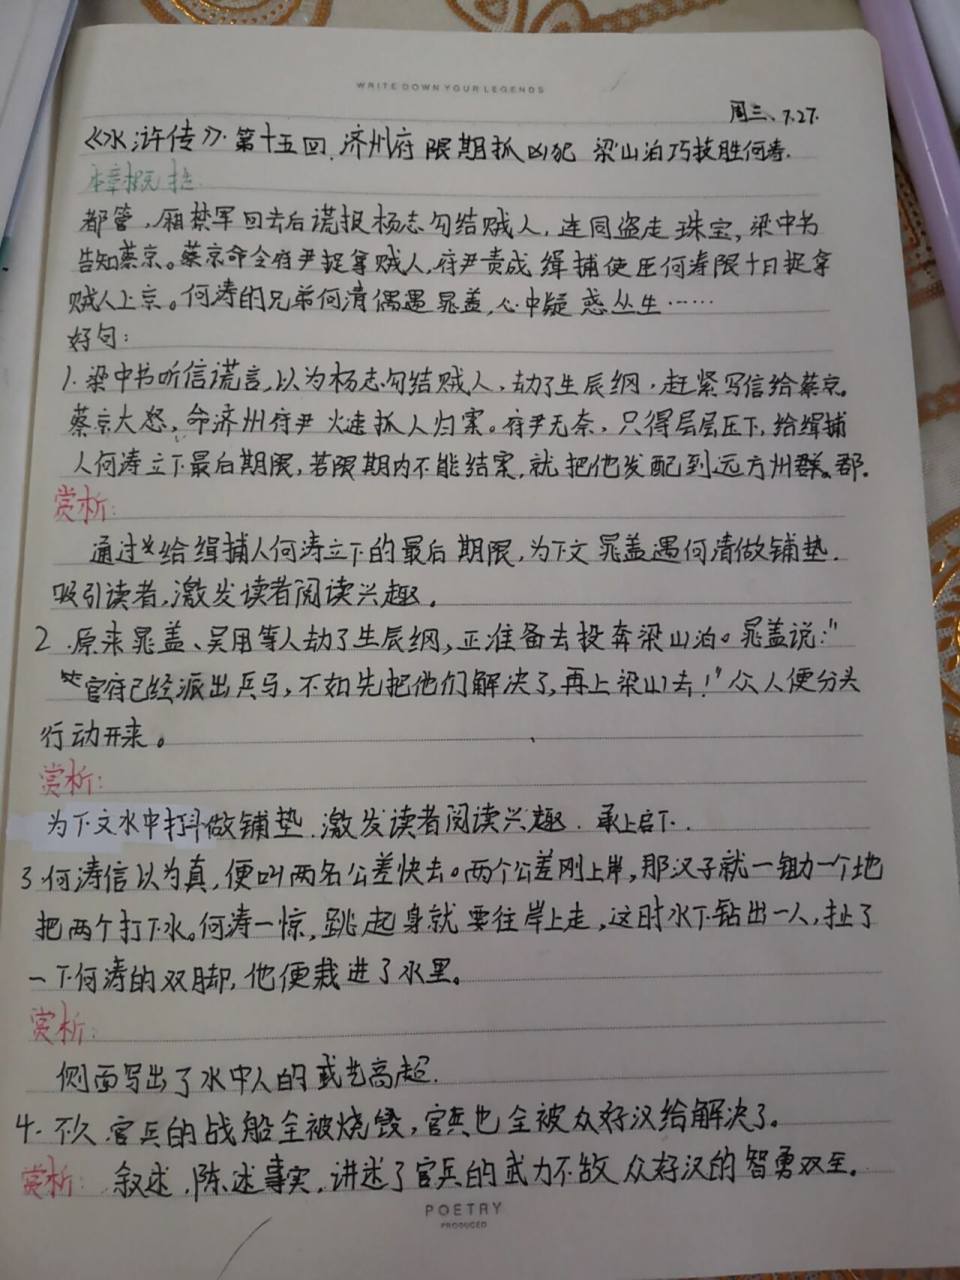 WRITE DOWN YOUR LEGENDS
周三、7.27.
《水浒传》.第十五回.济州府限期抓凶犯 梁山泊巧技胜何涛.
本章概括.
都管,厢禁军回去后谎报杨志勾结贼人,连同盗走珠宝,梁中书
告知蔡京。蔡京命令府尹捉拿贼人,府尹责成缉捕使臣何涛限十日捉拿
贼人上京。何涛的兄弟何清偶遇晁盖,心中疑惑丛生……
好句:
1.梁中书听信谎言,以为杨志勾结贼人,劫了生辰纲,赶紧写信给蔡京。
蔡京大怒,命济州府尹火速抓人归案。府尹无奈,只得层层压下,给缉捕
人何涛立下最后期限,若限期内不能结案,就把他发配到远方州郡.
赏析:
通过给缉捕人何涛立下的最后期限,为下文晁盖遇何清做铺垫.
吸引读者,激发读者阅读兴趣.
2.原来晁盖、吴用等人劫了生辰纲,正准备去投奔梁山泊。晁盖说:"
"官府已经派出兵马,不如先把他们解决了,再上梁山去!"众人便分头
行动开来。
赏析:
为下文水中打斗做铺垫.激发读者阅读兴趣.承上启下.
3.何涛信以为真,便叫两名公差快去。两个公差刚上岸,那汉子就一锄一个地
把两个打下水。何涛一惊,跳起身就要往岸上走,这时水下钻出一人,扯了
一下何涛的双脚,他便栽进了水里。
赏析:
侧面写出了水中人的武艺高超.
4.不久官兵的战船全被烧毁,官兵也全被众好汉给解决了。
赏析: 叙述,陈述事实,讲述了官兵的武力不敌众好汉的智勇双全.
POETRY
PRODUCED